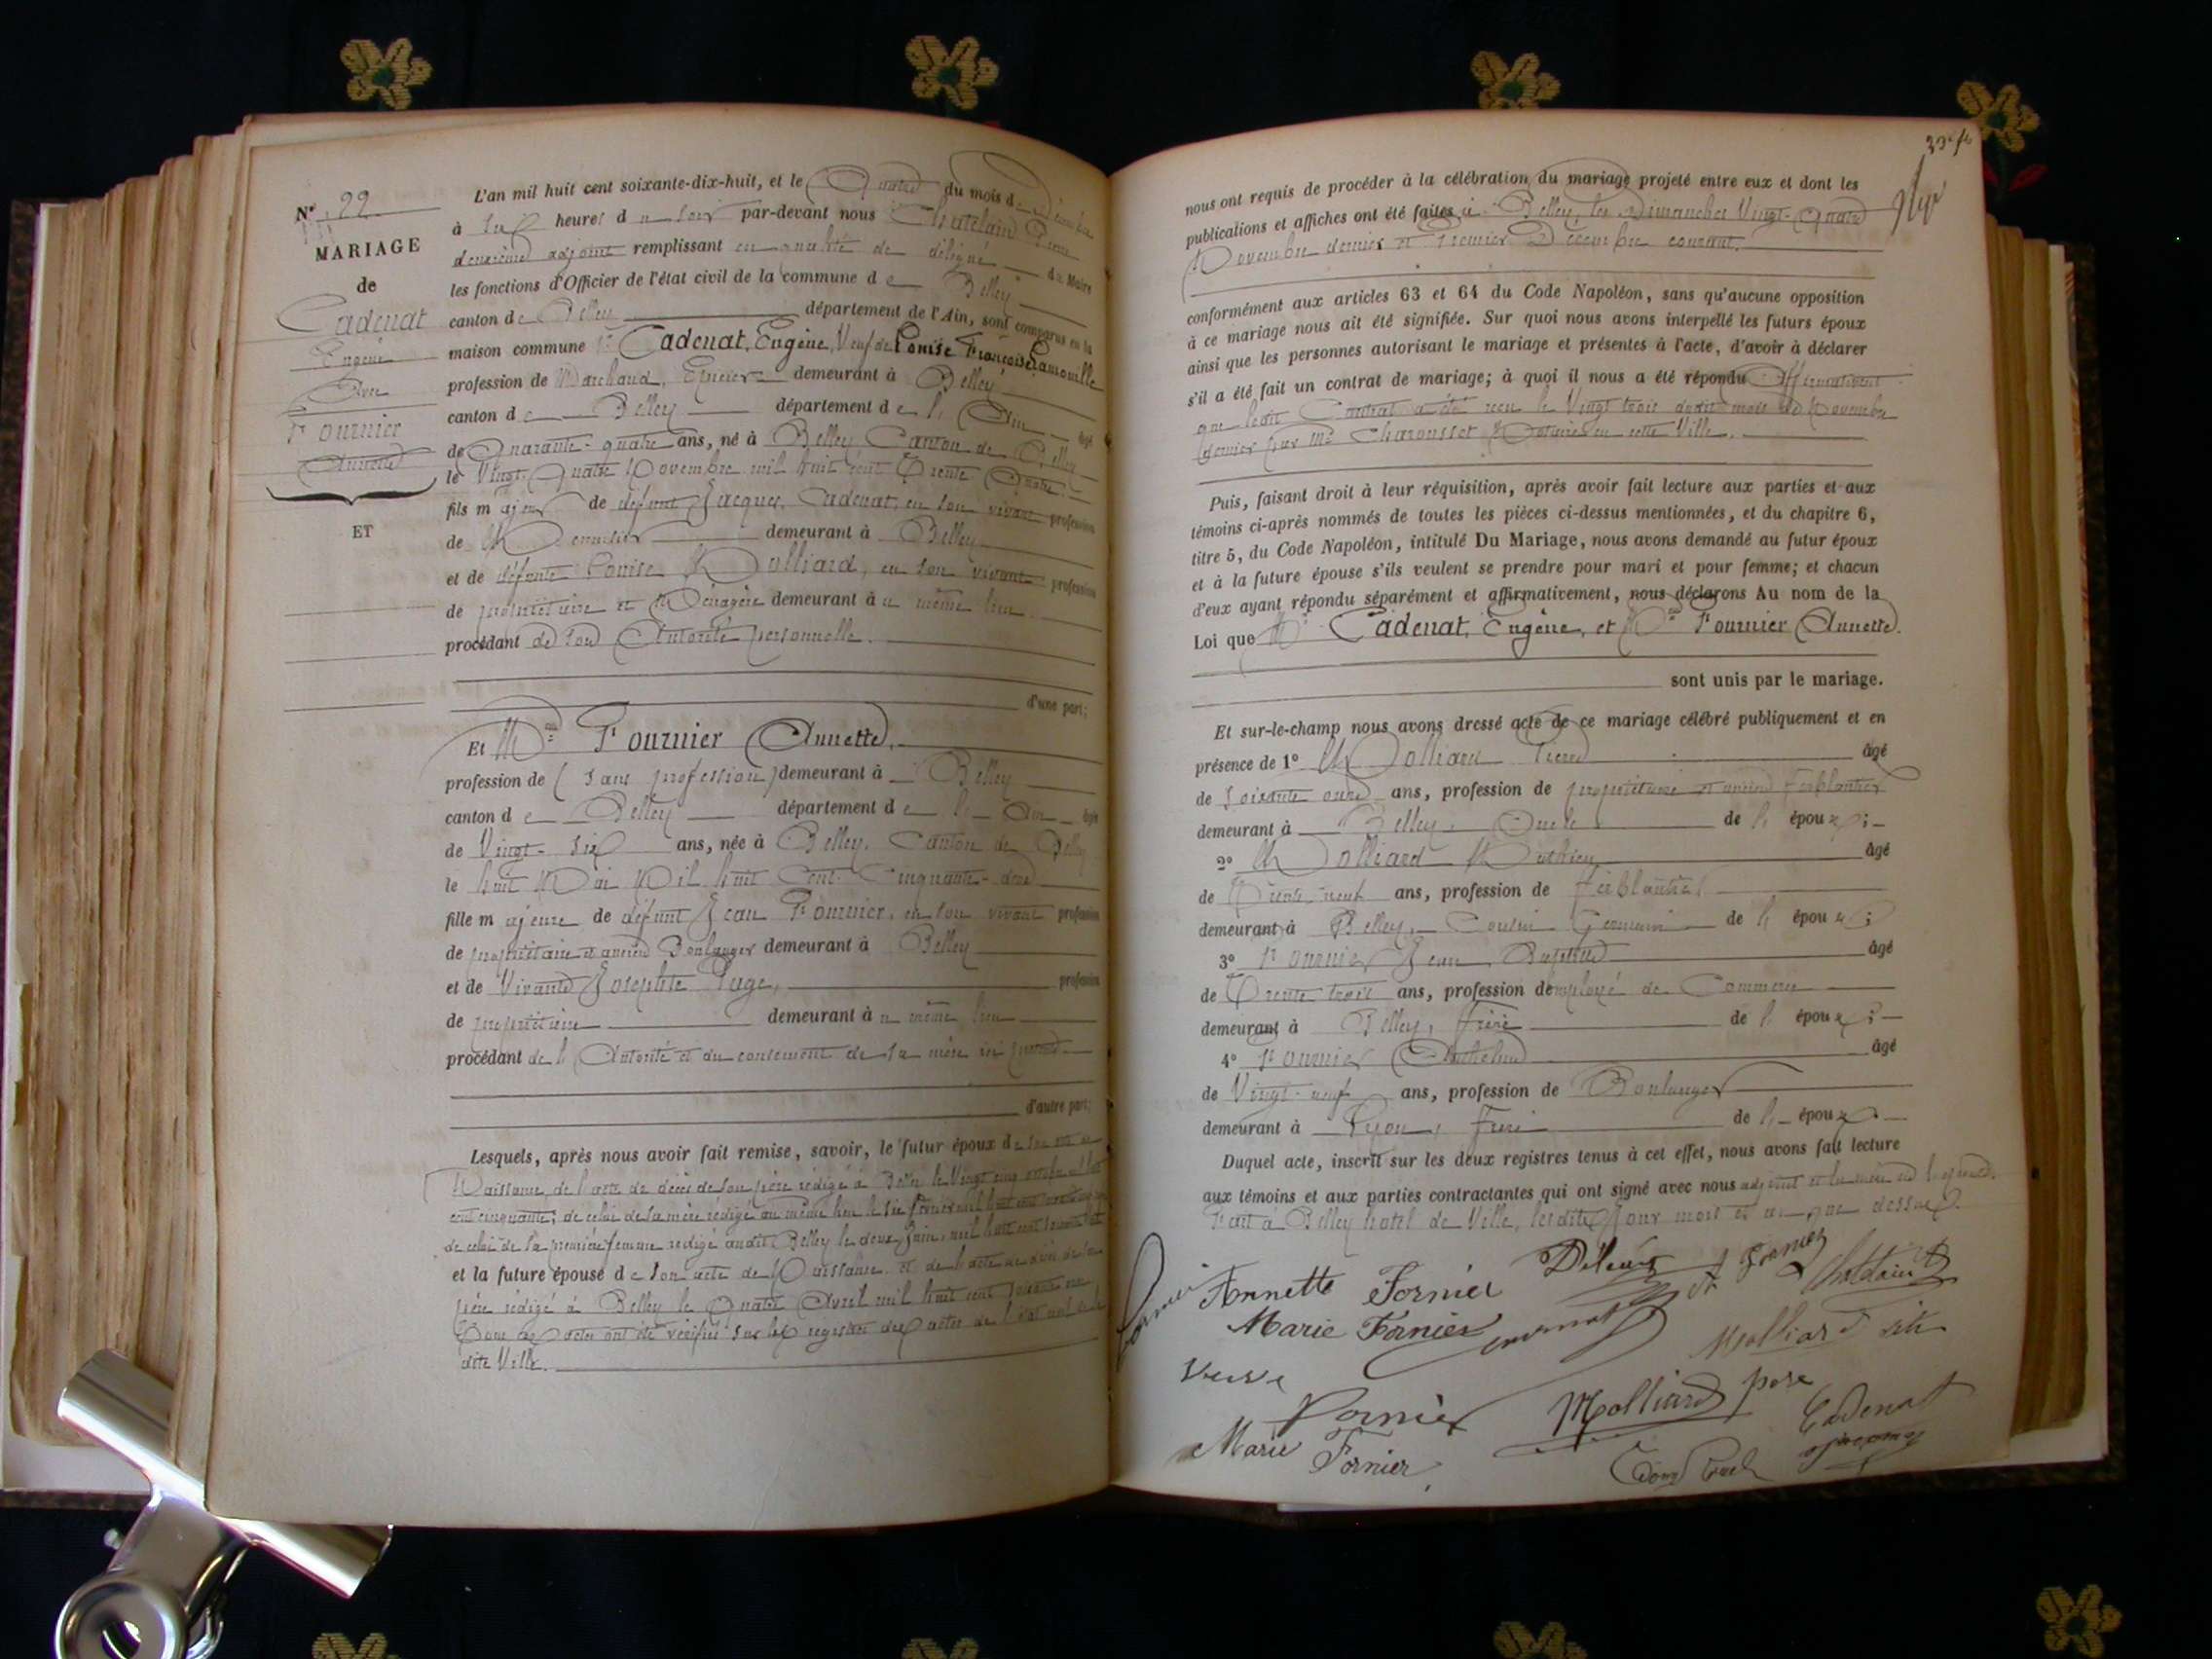 N° 22
MARIAGE
de
Cadenat
Eugène
Avec
Fournier
Annette
ET
L'an mil huit cent soixante-dix-huit, et le Quatre du mois de Décembre
à six heures du soir par-devant nous Chatelain Pierre
deuxième adjoint remplissant en qualité de délégué du Maire
les fonctions d'Officier de l'état civil de la commune de Belley
canton de Belley département de l'Ain, sont comparus en la
maison commune Cadenat, Eugène, Veuf de Louise Françoise Lamouille
profession de Marchand, Epicier demeurant à Belley
canton de Belley département de l'Ain âgé
de Quarante-quatre ans, né à Belley Canton de Belley
le Vingt Quatre Novembre mil huit cent Trente Quatre
fils majeur de défunt Jacques Cadenat, en son vivant profession
de Menuisier demeurant à Belley
et de défunte Louise Molliard, en son vivant profession
de propriétaire et Ménagère demeurant au même lieu
procédant de son Autorité personnelle.
d'une part;
Et Melle Fournier Annette,
profession de (sans profession) demeurant à Belley
canton de Belley département de l'Ain âgée
de Vingt-six ans, née à Belley, Canton de Belley
le huit Mai Mil huit Cent Cinquante-deux
fille majeure de défunt Jean Fournier, en son vivant profession
de propriétaire et ancien Boulanger demeurant à Belley
et de Vivante Josephte Page, profession
de propriétaire demeurant au même lieu
procédant de l'Autorité et du consentement de sa mère ici présente
d'autre part;
Lesquels, après nous avoir fait remise, savoir, le futur époux de son acte de
Naissance, de l'acte de décès de son père rédigé à Belley le Vingt cinq octobre mil huit
cent cinquante; de celui de sa mère rédigé au même lieu le six février mil huit cent
de celui de sa première femme rédigé audit Belley le deux Juin, mil huit cent soixante huit
et la future épouse de son acte de Naissance et de l'acte de décès de son
père rédigé à Belley le Quatre Avril mil huit cent soixante
Tous ces actes ont été vérifiés sur les registres des actes de l'état civil de la
dite Ville.
nous ont requis de procéder à la célébration du mariage projeté entre eux et dont les
publications et affiches ont été faites à Belley, les Dimanches Vingt-Quatre
Novembre dernier et Premier Décembre courant.
conformément aux articles 63 et 64 du Code Napoléon, sans qu'aucune opposition
à ce mariage nous ait été signifiée. Sur quoi nous avons interpellé les futurs époux
ainsi que les personnes autorisant le mariage et présentes à l'acte, d'avoir à déclarer
s'il a été fait un contrat de mariage; à quoi il nous a été répondu Affirmativement
que ledit Contrat a été reçu le Vingt trois dudit mois de Novembre
dernier par Me Charousset Notaire en cette Ville.
Puis, faisant droit à leur réquisition, après avoir fait lecture aux parties et aux
témoins ci-après nommés de toutes les pièces ci-dessus mentionnées, et du chapitre 6,
titre 5, du Code Napoléon, intitulé Du Mariage, nous avons demandé au futur époux
et à la future épouse s'ils veulent se prendre pour mari et pour femme; et chacun
d'eux ayant répondu séparément et affirmativement, nous déclarons Au nom de la
Loi que Mr Cadenat, Eugène, et Melle Fournier Annette.
sont unis par le mariage.
Et sur-le-champ nous avons dressé acte de ce mariage célébré publiquement et en
présence de 1° Molliard Pierre âgé
de soixante onze ans, profession de propriétaire et ancien Ferblantier
demeurant à Belley, Oncle de l'époux;
2° Molliard Mathieu âgé
de Trente-neuf ans, profession de ferblantier
demeurant à Belley, Cousin Germain de l'époux;
3° Fournier Jean Baptiste âgé
de Trente trois ans, profession d'employé de Commerce
demeurant à Belley, frère de l'épouse;
4° Fournier Anthelme âgé
de Vingt-neuf ans, profession de Boulanger
demeurant à Lyon, frère de l'épouse.
Duquel acte, inscrit sur les deux registres tenus à cet effet, nous avons fait lecture
aux témoins et aux parties contractantes qui ont signé avec nous adjoint et la mère de l'épouse.
Fait à Belley hotel de Ville, lesdits Jour mois et an que dessus.
Annette Fornier
Marie Fornier
Chatelain
Molliard fils
Veuve
Fornier
Molliard père
Cadenat
Marie Fornier